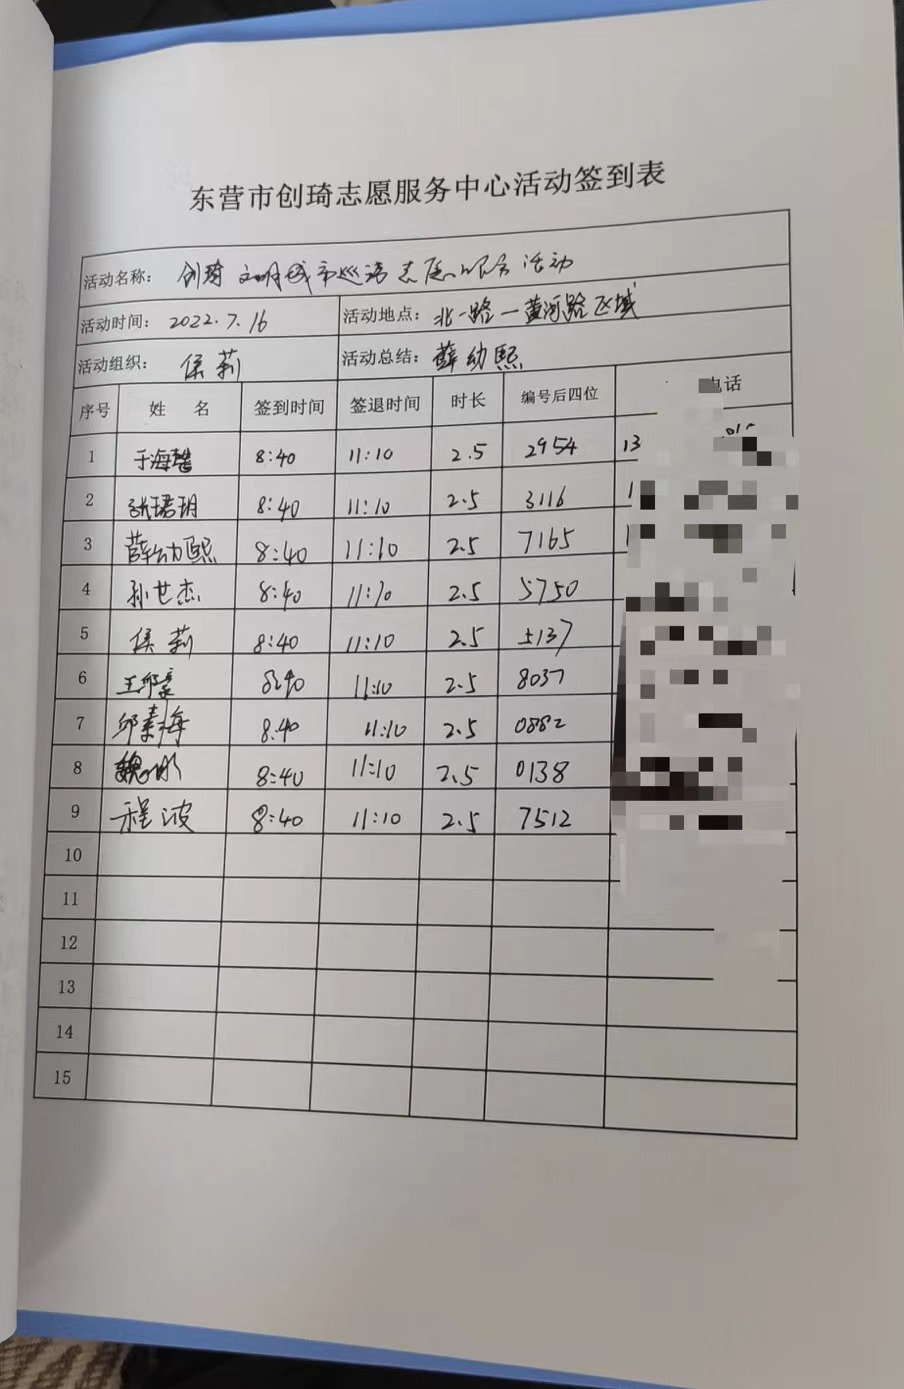 东营市创琦志愿服务中心活动签到表
活动名称： 创琦文明城市巡访志愿服务活动
活动时间： 2022.7.16 活动地点： 北一路一黄河路区域
活动组织： 侯莉 活动总结： 薛幼熙
序号 姓 名 签到时间 签退时间 时长 编号后四位 电话
1 于海馨 8:40 11:10 2.5 2954 13
2 张珺玥 8:40 11:10 2.5 3116 1
3 薛幼熙 8:40 11:10 2.5 7165
4 孙世杰 8:40 11:10 2.5 5750
5 侯莉 8:40 11:10 2.5 5137
6 王 8:40 11:10 2.5 8037
7 邱素海 8:40 11:10 2.5 0882
8 魏 8:40 11:10 2.5 0138
9 程波 8:40 11:10 2.5 7512
10
11
12
13
14
15